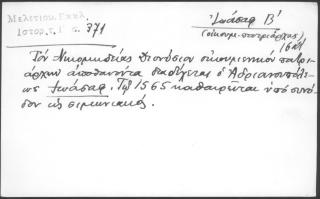 Μελετίου. Εκκλ.
Ιστορ. τ. 371
Ἰωάσαφ Β΄
(οἰκουμ. πατριάρχης)
Τὸν Νικομηδείας Διονύσιον οἰκουμενικὸν πατρι-
άρχην ἀποθανόντα διαδέχεται ὁ Ἀδριανουπόλε-
ως Ἰωάσαφ. Τῷ 1565 καθαιρεῖται ὑπὸ συνό-
δου ὡς σιμωνιακός.